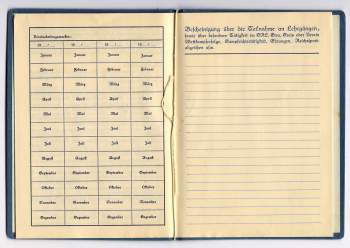 19 / 19 / 19 / 19 /
Januar Januar Januar Januar
Februar Februar Februar Februar
März März März März
April April April April
Mai Mai Mai Mai
Juni Juni Juni Juni
Juli Juli Juli Juli
August August August August
September September September September
Oktober Oktober Oktober Oktober
November November November November
Dezember Dezember Dezember Dezember
Bescheinigung über die Teilnahme an Lehrgängen,
sowie über besondere Tätigkeit in Gau, Kreis oder Verein
Wettkampferfolge, Sitzungen, Reichssport-
abzeichen usw.